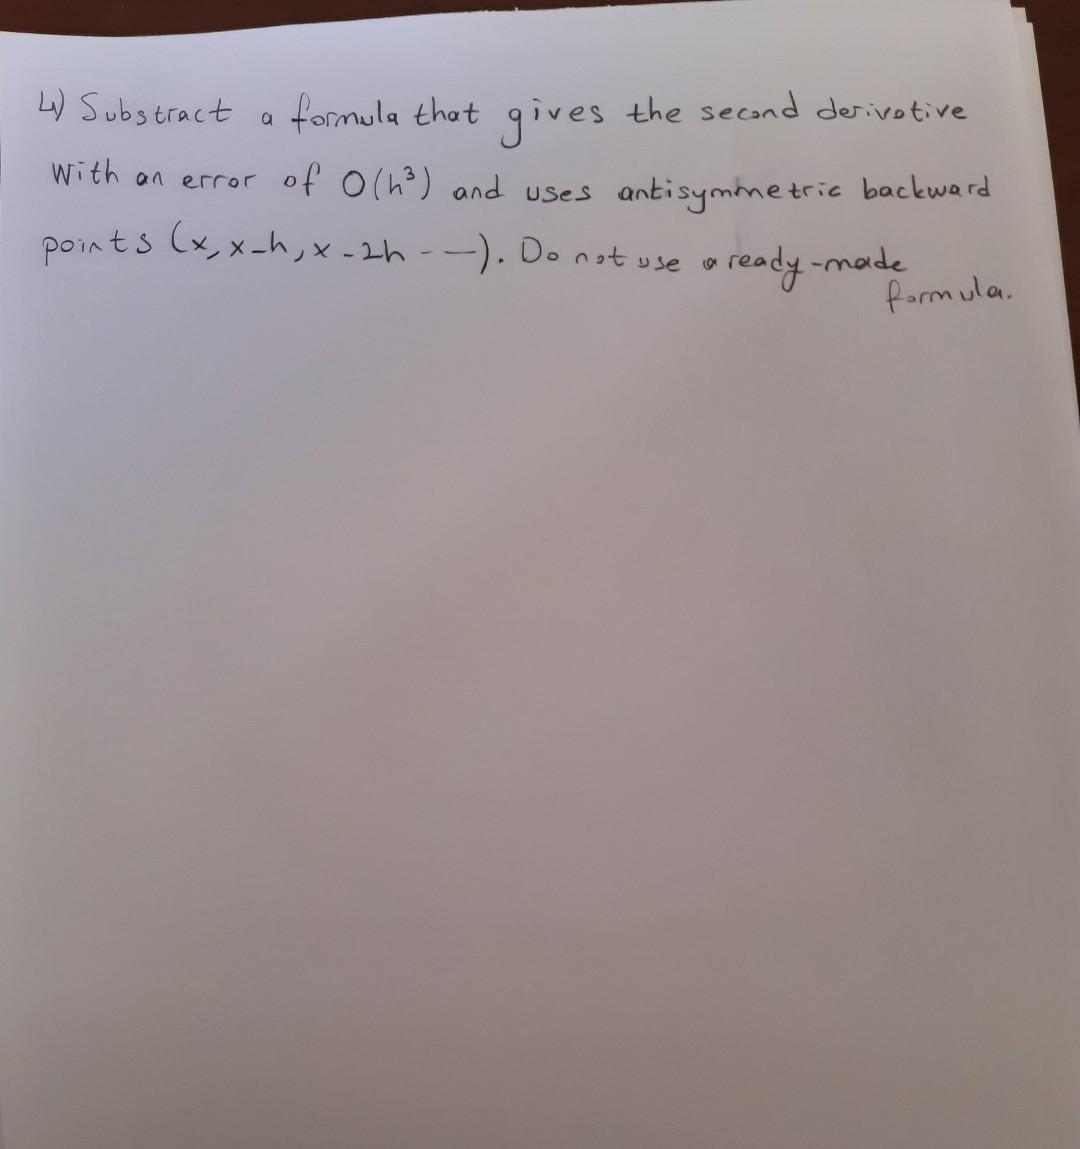 4) Substract a formula that gives the second derivative
With an error of O(h³) and uses antisymmetric backward
points (x, x-h, x-2h ---). Do not use a ready-made
formula.